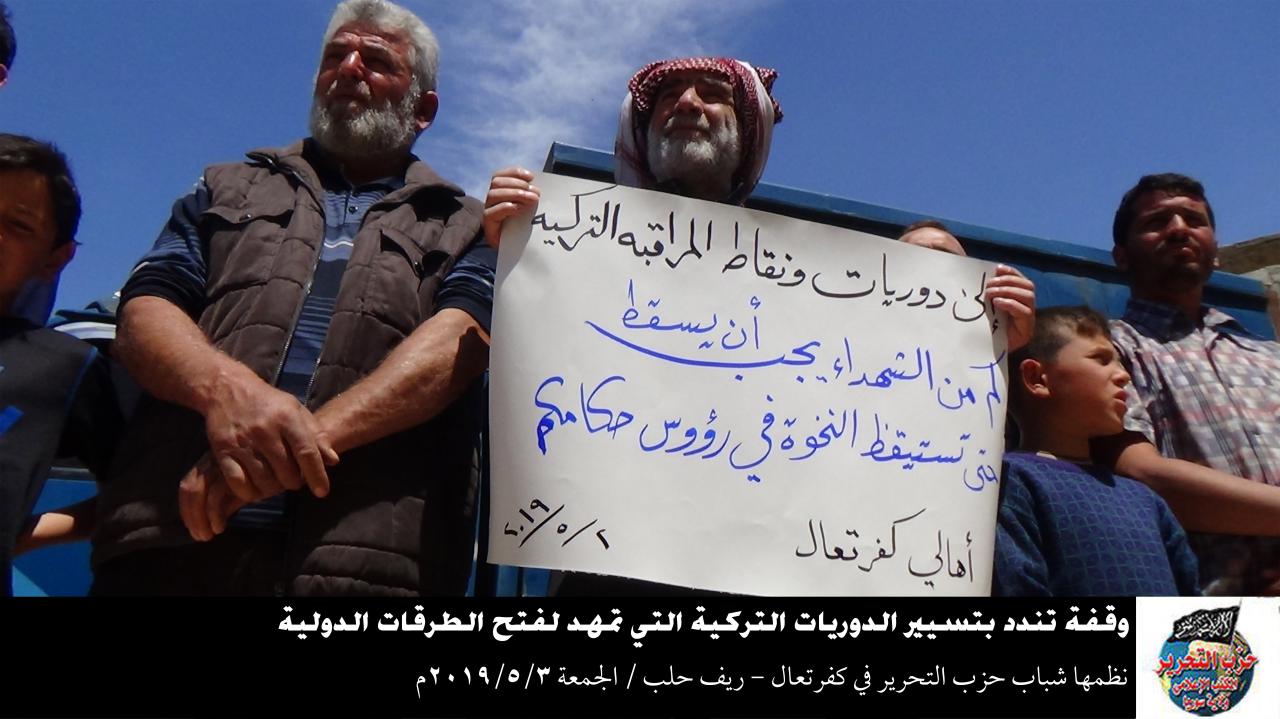 إلى دوريات ونقاط المراقبه التركيه
كم من الشهداء يجب أن يسقط
حتى تستيقظ النخوة في رؤوس حكامكم
أهالي كفرتعال
٢٠١٩/٥/٢
وقفة تندد بتسيير الدوريات التركية التي تمهد لفتح الطرقات الدولية
نظمها شباب حزب التحرير في كفرتعال – ريف حلب / الجمعة ٢٠١٩/٥/٣م
حزب التحرير
المكتب الإعلامي
ولاية سوريا